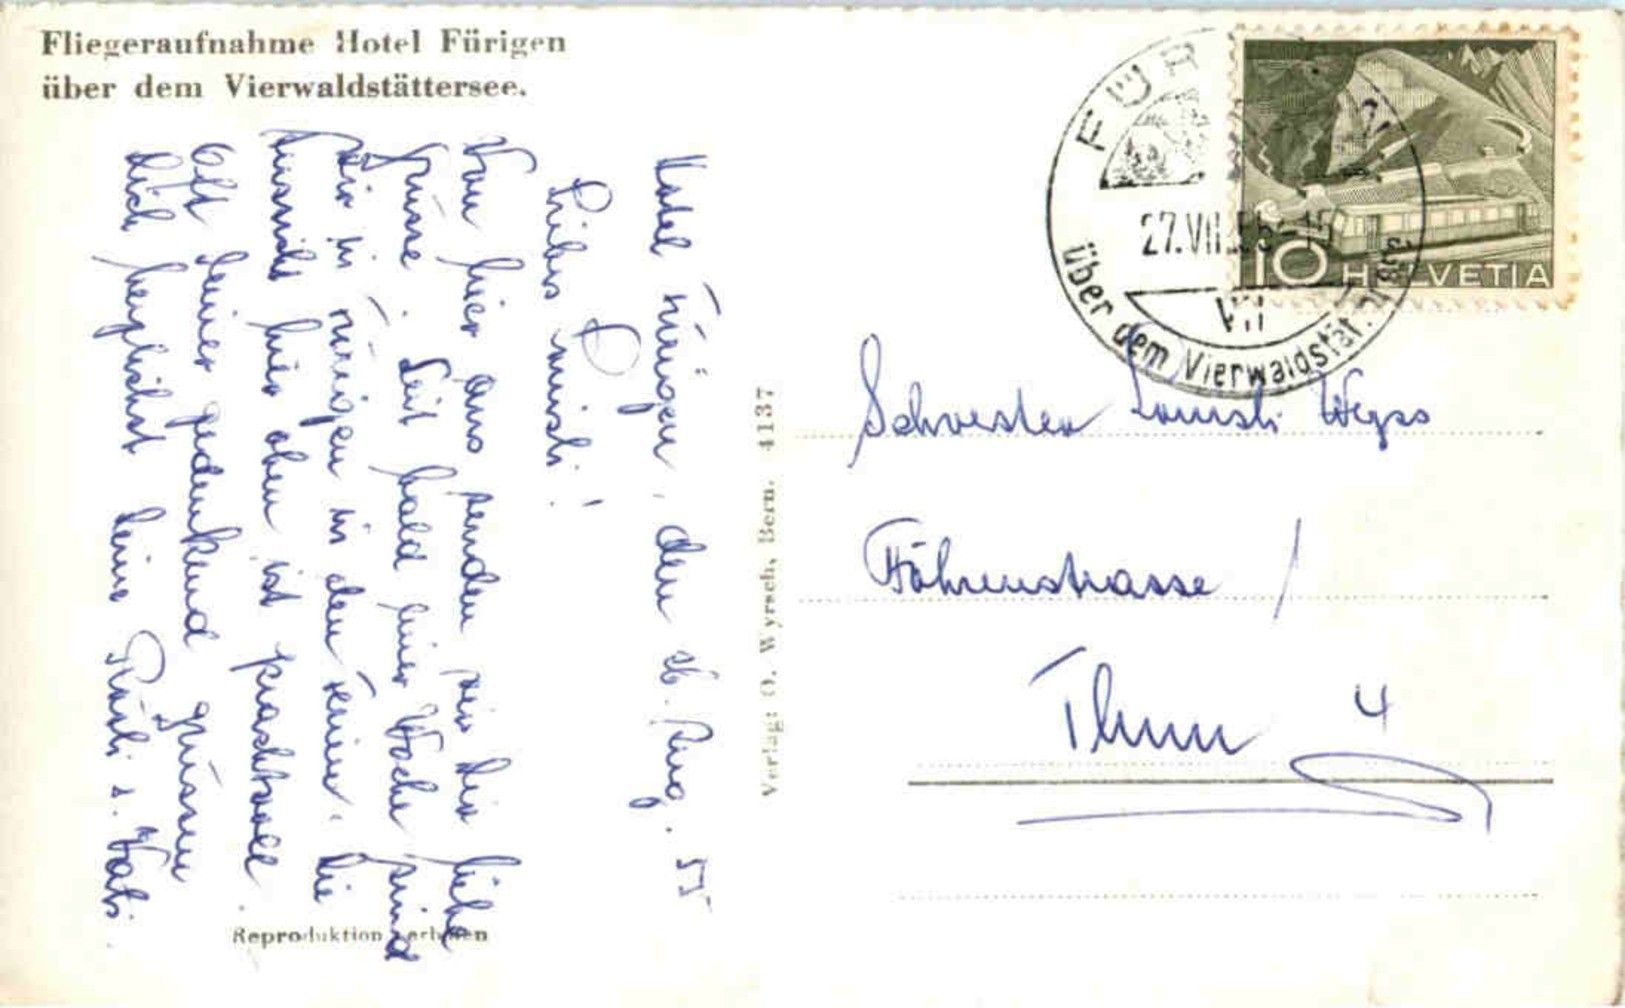 Fliegeraufnahme Hotel Fürigen
über dem Vierwaldstättersee.
Hotel Fürigen, den 26. Aug. 55
Liebes
Von hier aus senden wir Dir liebe
Grüsse. Seit bald einer Woche sind
wir in Fürigen in den Ferien. Die
Aussicht hier oben ist prachtvoll.
Oft Deiner gedenkend grüssen
Dich herzlichst Deine Rösli u. Vati.
Reproduktion verboten
Verlag: O. Wyrsch, Bern. 4137
FÜR
27.VIII.55
VIII
über dem Vierwaldstät. See
10 HELVETIA
Schwester Louisli Wyss
Föhrenstrasse /
Thun 4